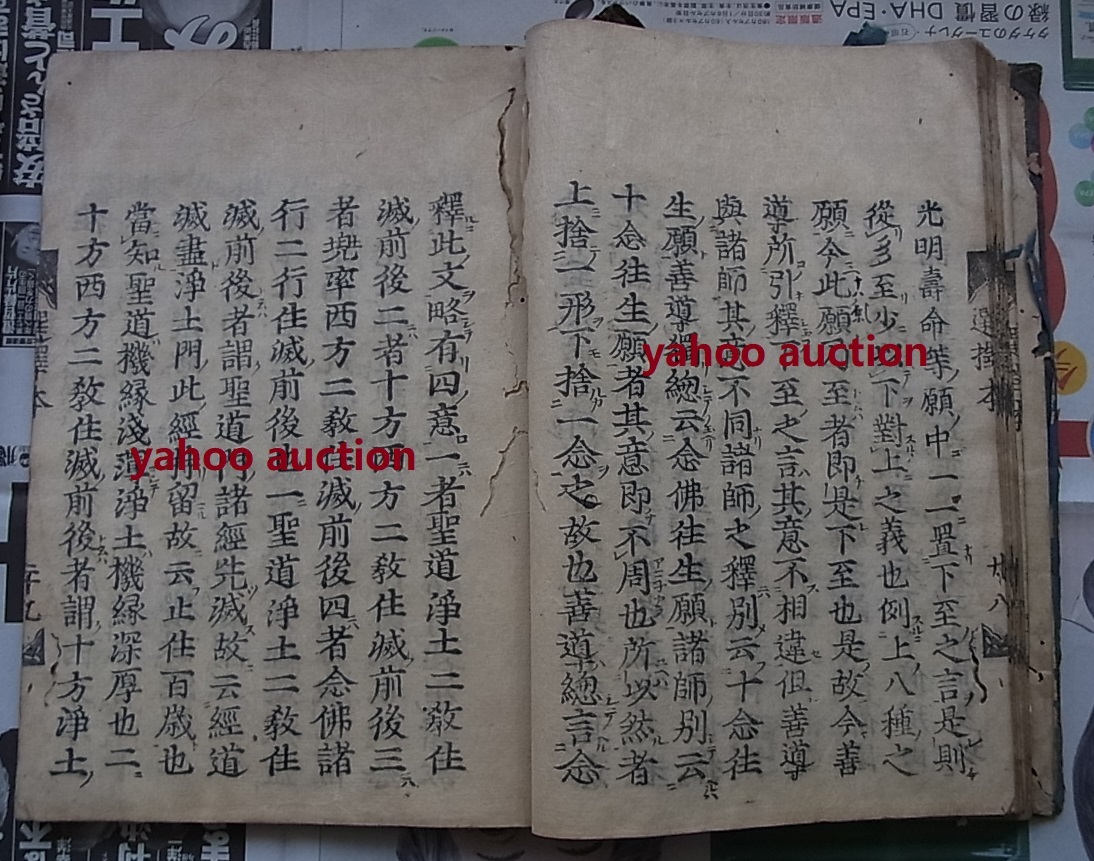 光明壽命等願中一一置下至之言是則
從多至少以下對上之義也例上八種之
願今此願乃至者即是下至也是故今善
導所引釋下至之言其意不相違但善導
與諸師其意不同諸師之釋別云十念往
生願善導獨總云念佛往生願諸師別云
十念往生願者其意即不周也所以然者
上捨一形下捨一念之故也善導總言念
釋此文略有四意一者聖道淨土二教住
滅前後二者十方西方二教住滅前後三
者兜率西方二教住滅前後四者念佛諸
行二行住滅前後也一聖道淨土二教住
滅前後者謂聖道門諸經先滅故云經道
滅盡淨土門此經特留故云止住百歲也
當知聖道機縁淺薄淨土機縁深厚也二
十方西方二教住滅前後者謂十方淨土
選擇本
廿八
yahoo auction
yahoo auction
DHA・EPA
緑の習慣
タケダのユーグレナ
通販限定